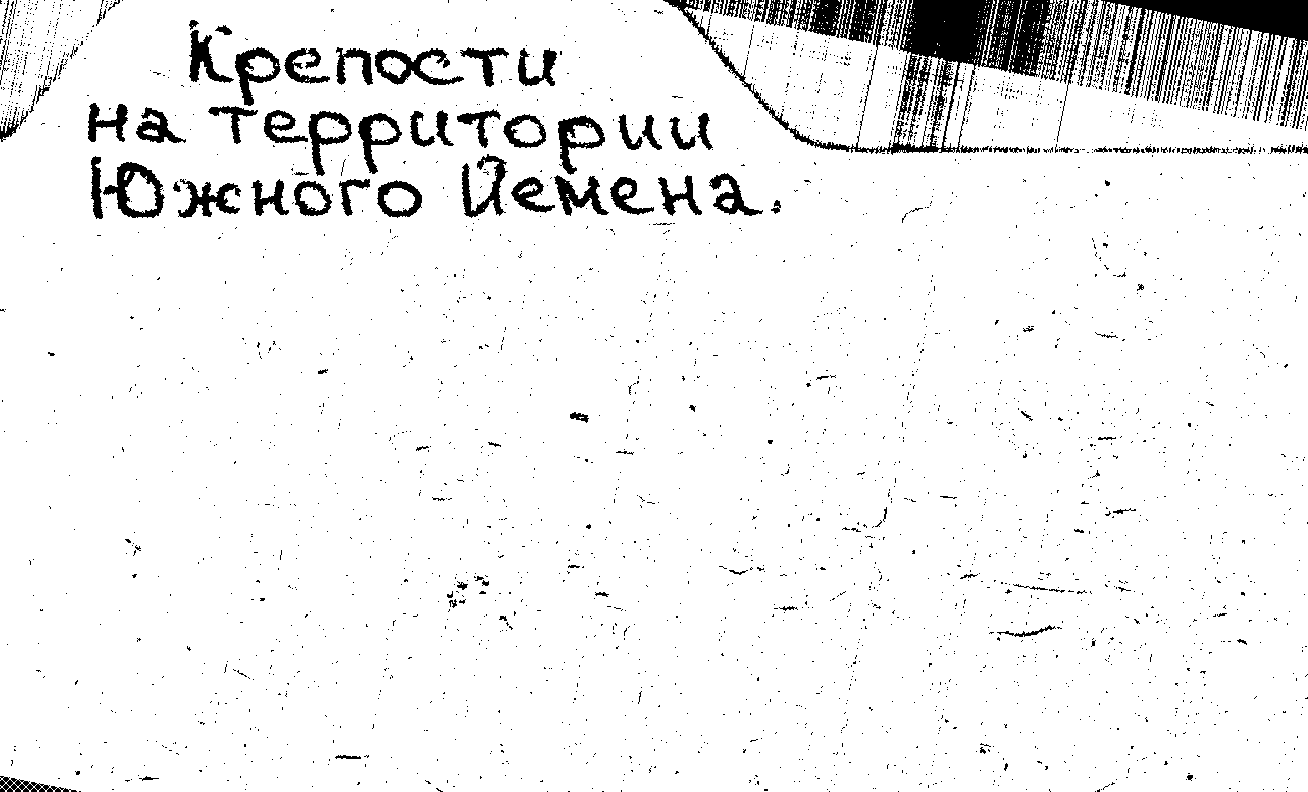 Крепости
на территории
Южного Йемена.